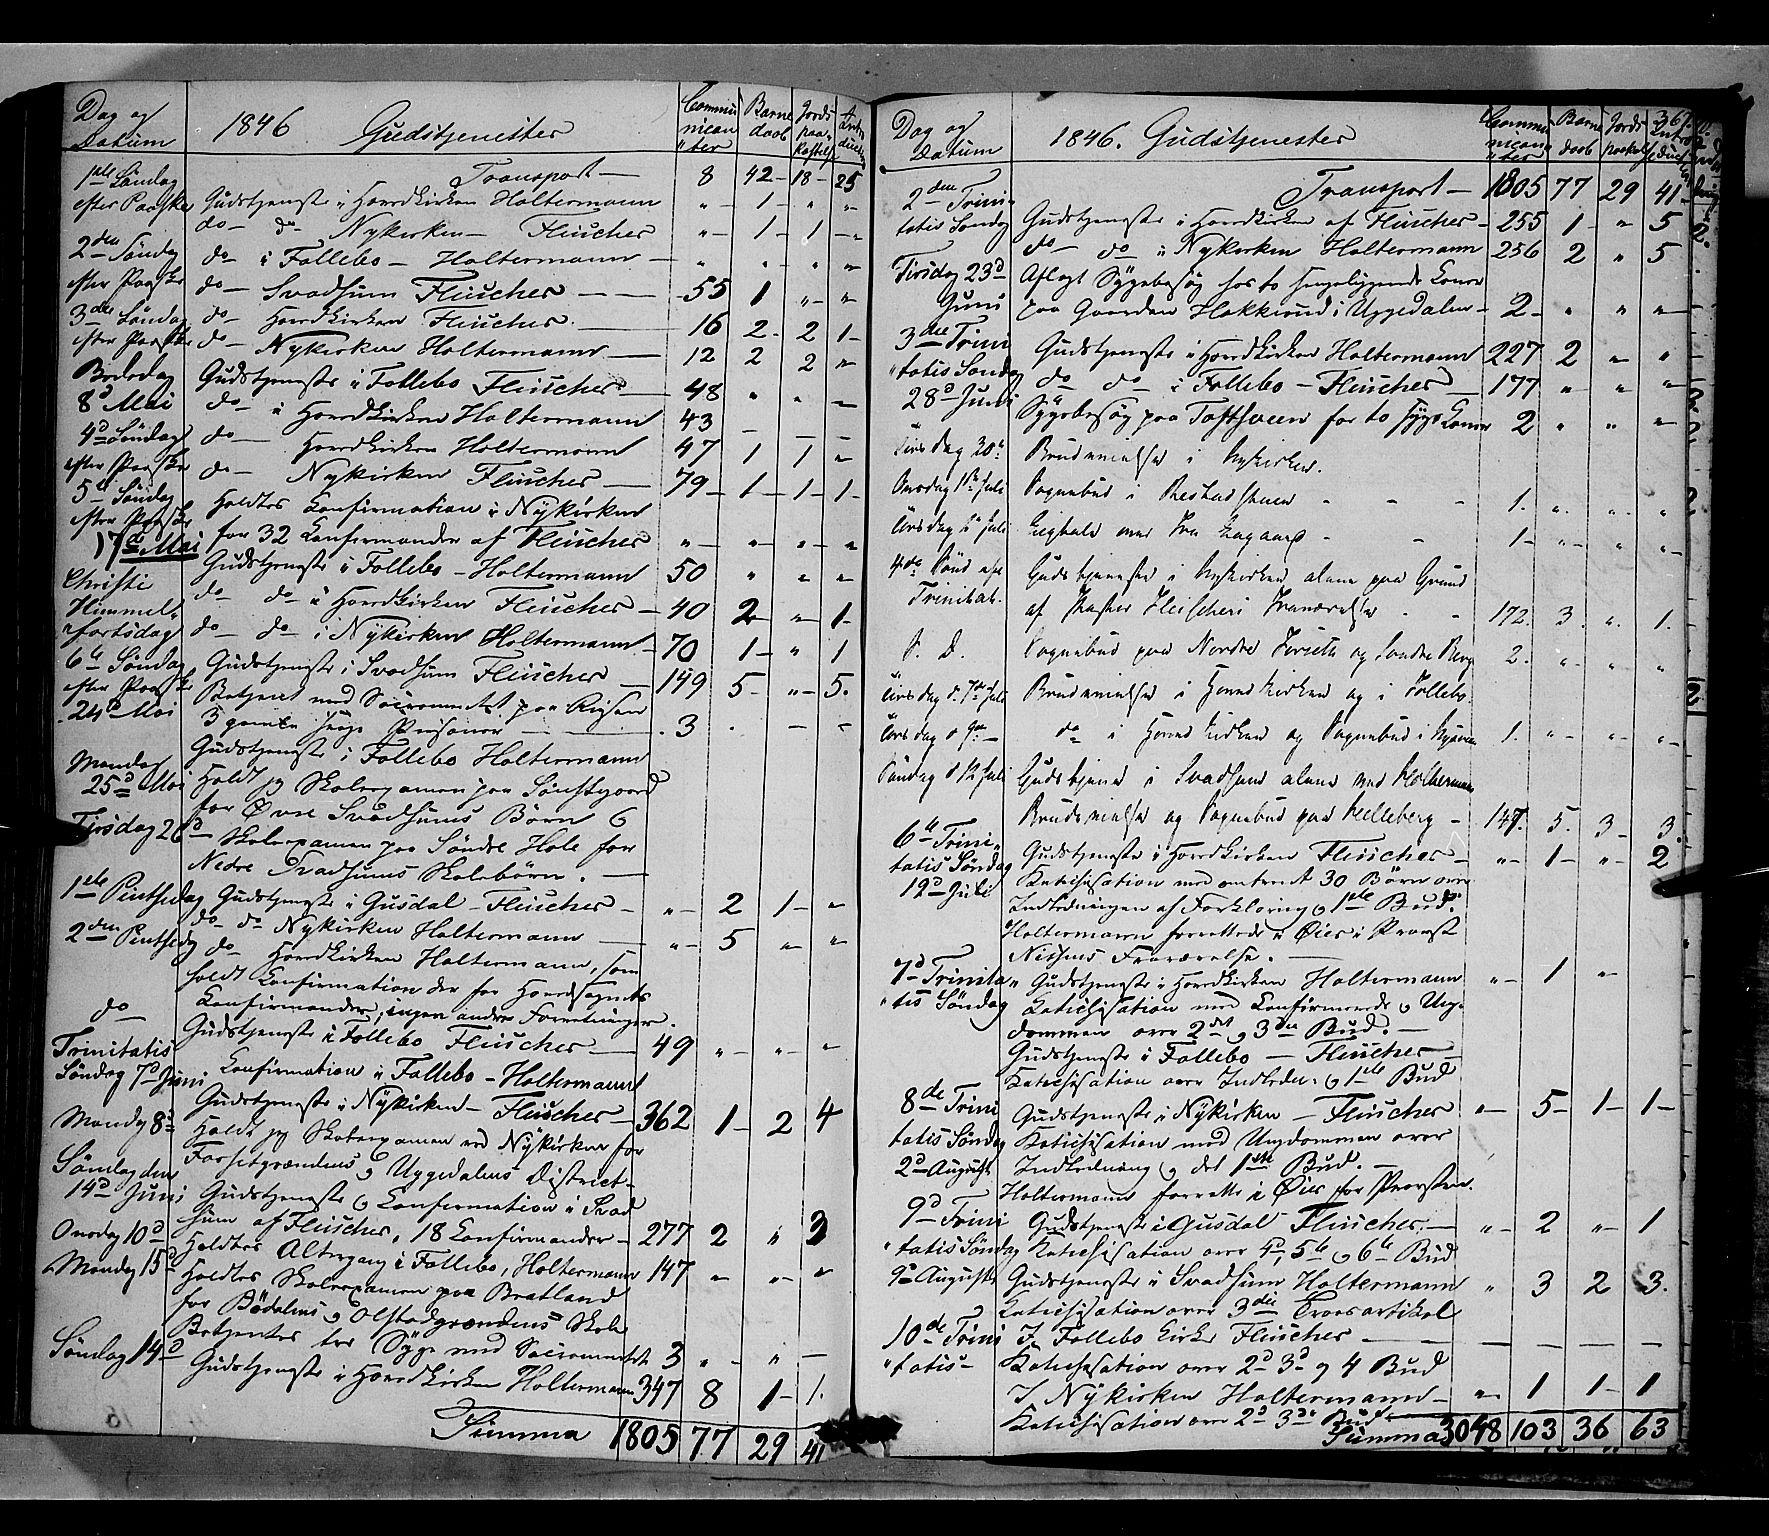 Dag og Datum 1846 Gudstjenester Communicanter Barnedaab Jordpaakastelse Introduction
1ste Søndag Transport — 8 42 - 18 - 25
efter Paaske Gudstjeneste i Hovedkirken Holtermann " - 1 - " "
do — do Nykirken — Fleischer " - 1 - 1 - "
2den Søndag do — i Follebo — Holtermann — " " " "
efter Paaske do — Svadsum Fleischer — 55 1 " - "
3die Søndag do — Hovedkirken Fleischer — 16 2 - 2 1 -
efter Paaske do — Nykirken Holtermann — 12 2 2 "
Bededag Gudstjeneste i Follebo Fleischer — 48 " " —
8d Mai do — i Hovedkirken Holtermann 43 — — —
4d Søndag do — Hovedkirken Holtermann 47 1 1 "
efter Paaske do — Nykirken Fleischer — 79 - 1 - 1 - 1 -
5te Søndag Holdtes Confirmation i Nykirken
efter Paaske for 32 Confirmander af Fleischer " - " - " - "
17de Mai Gudstjeneste i Follebo - Holtermann 50 " " "
Christi do — do i Hovedkirken Fleischer — 40 2 - " - 1 -
Himmelfartsdag do — do — i Nykirken Holtermann — 70 1 - " 1
6te Søndag Gudstjeneste i Svadsum Fleischer — 149 5 - " - 5.
efter Paaske Betjent med Sacramentet paa Reisen
24d Mai 3 gamle syge Personer — 3 . — —
Gudstjeneste i Follebo Holtermann
Mandag Holdt jeg Skoleexamen paa
25d Mai for Øvre Svadsums Børn
Tirsdag 26d Skoleexamen paa Søndre Hole for
Nedre Svadsums Skolebørn. —
1ste Pintsedag Gudstjeneste i Gusdal - Fleischer — " - 2 1 - "
2den Pintsedag do do Nykirken Holtermann — " - 5 " - "
do Hovedkirken Holtermann, som
holdt Confirmation der for Hovedsognets
do Confirmander, ingen andre Forretninger.
Gudstjeneste i Follebo Fleischer — 49 " - " - "
Trinitatis Confirmation i Follebo - Holtermann
Søndag 7d Juni Gudstjeneste i Nykirken — Fleischer — 362 1 - 2 4
Mandag 8d Holdt jeg Skoleexamen ved Nykirken for
Forsetgrændens og Uggedalens District —
Søndag den
14d Juni Gudstjeneste og Confirmation i Svad
sum af Fleischer, 18 Confirmander — 277 2 " 3
Onsdag 10d Holdtes Altergang i Follebo, Holtermann 147 " " - "
Mandag 15d Holdtes Skoleexamen paa Bratland
for Bødalens og Olstadgrændens Skole
Betjentes tre Syge med Sacramentet 3 " - " —
Søndag 14d Gudstjeneste i Hovedkirken Holtermann 347 8 1 - 1.
Summa 1805 77 29 41
367.
Dag og Datum 1846. Gudstjenester Communicanter Barnedaab Jordpaakast Introduction
2den Trini Transport — 1805 77 29 41 -
tatis Søndag Gudstjeneste i Hovedkirken af Fleischer — 255 1 - " 5
do — do — i Nykirken Holtermann 256 2 " 5
Tirsdag 23d Aflagt Sygebesøg hos to sengeliggende Koner
Juni paa Gaarden Hakkerud i Uggedalen — 2 - " " " -
3die Trini Gudstjeneste i Hovedkirken Holtermann 227 2 " - "
tatis Søndag do do — i Follebo — Fleischer — 177 " " - "
28d Juni Sygebesøg paa Toftsveen for to syge Koner 2 " " "
Tirsdag 30d Brudevielse i Nykirken.
Onsdag 1ste Juli Sognebud i — 1. ". ". "
1 - " - " "
4de Sønd ef Gudstjeneste i Nykirken alene paa Grund
Trinitat. af Pastor Fleischers Fraværelse - 172. 3. ". 1.
S. D. Sognebud paa Nordre og Søndre Berg 2. " - " "
Tirsdag d. 7de Juli Brudevielse i Hovedkirken og i Follebo.
d 9de — do i Hovedkirken og Sognebud i 1. " - " - " -
Søndag d 12 Juli Gudstjeneste i Svadsum alene ved Holtermann
Brudevielse og Sognebud paa Helleberg — 147. 5. 3 - 3.
6te Trini
tatis Søndag Gudstjeneste i Hovedkirken Fleischer — " - 1 - " - 2
12d Juli Katechisation med omtrent 30 Børn over
Indledningen af Forklaring og 1ste Bud.
Holtermann forrettede i Øier i Provst
Nissens Fraværelse. —
7d Trinita Gudstjeneste i Hovedkirken Holtermann " - 1 "
tis Søndag Katechisation med Confirmerede og Ung-
dommen over 2det og 3die Bud. —
Gudstjeneste i Follebo — Fleischer —
Katechisation over Indledn: og 1ste Bud
8de Trini Gudstjeneste i Nykirken — Fleischer " - 5 - 1 - 1 -
tatis Søndag Katechisation med Ungdommen over
2d August Indledning og det 1ste Bud. —
Holtermann forrette i Øier for Provsten.
9d Trini Gudstjeneste i Gusdal Fleischer. — " - 2 " - 1
tatis Søndag Katechisation over 4d, 5te og 6te Bud
9d August Gudstjeneste i Svadsum Holtermann " 3 2 3.
Katechisation over 3die Troesartikel
10de Trini I Follebo Kirke Fleischer — — — — —
tatis — Katechisation over 2d 3d og 4 Bud
I Nykirken Holtermann — " - 1 1 - 1
Katechisation over 2d 3die Bud.
Summa 3048 103 36 63